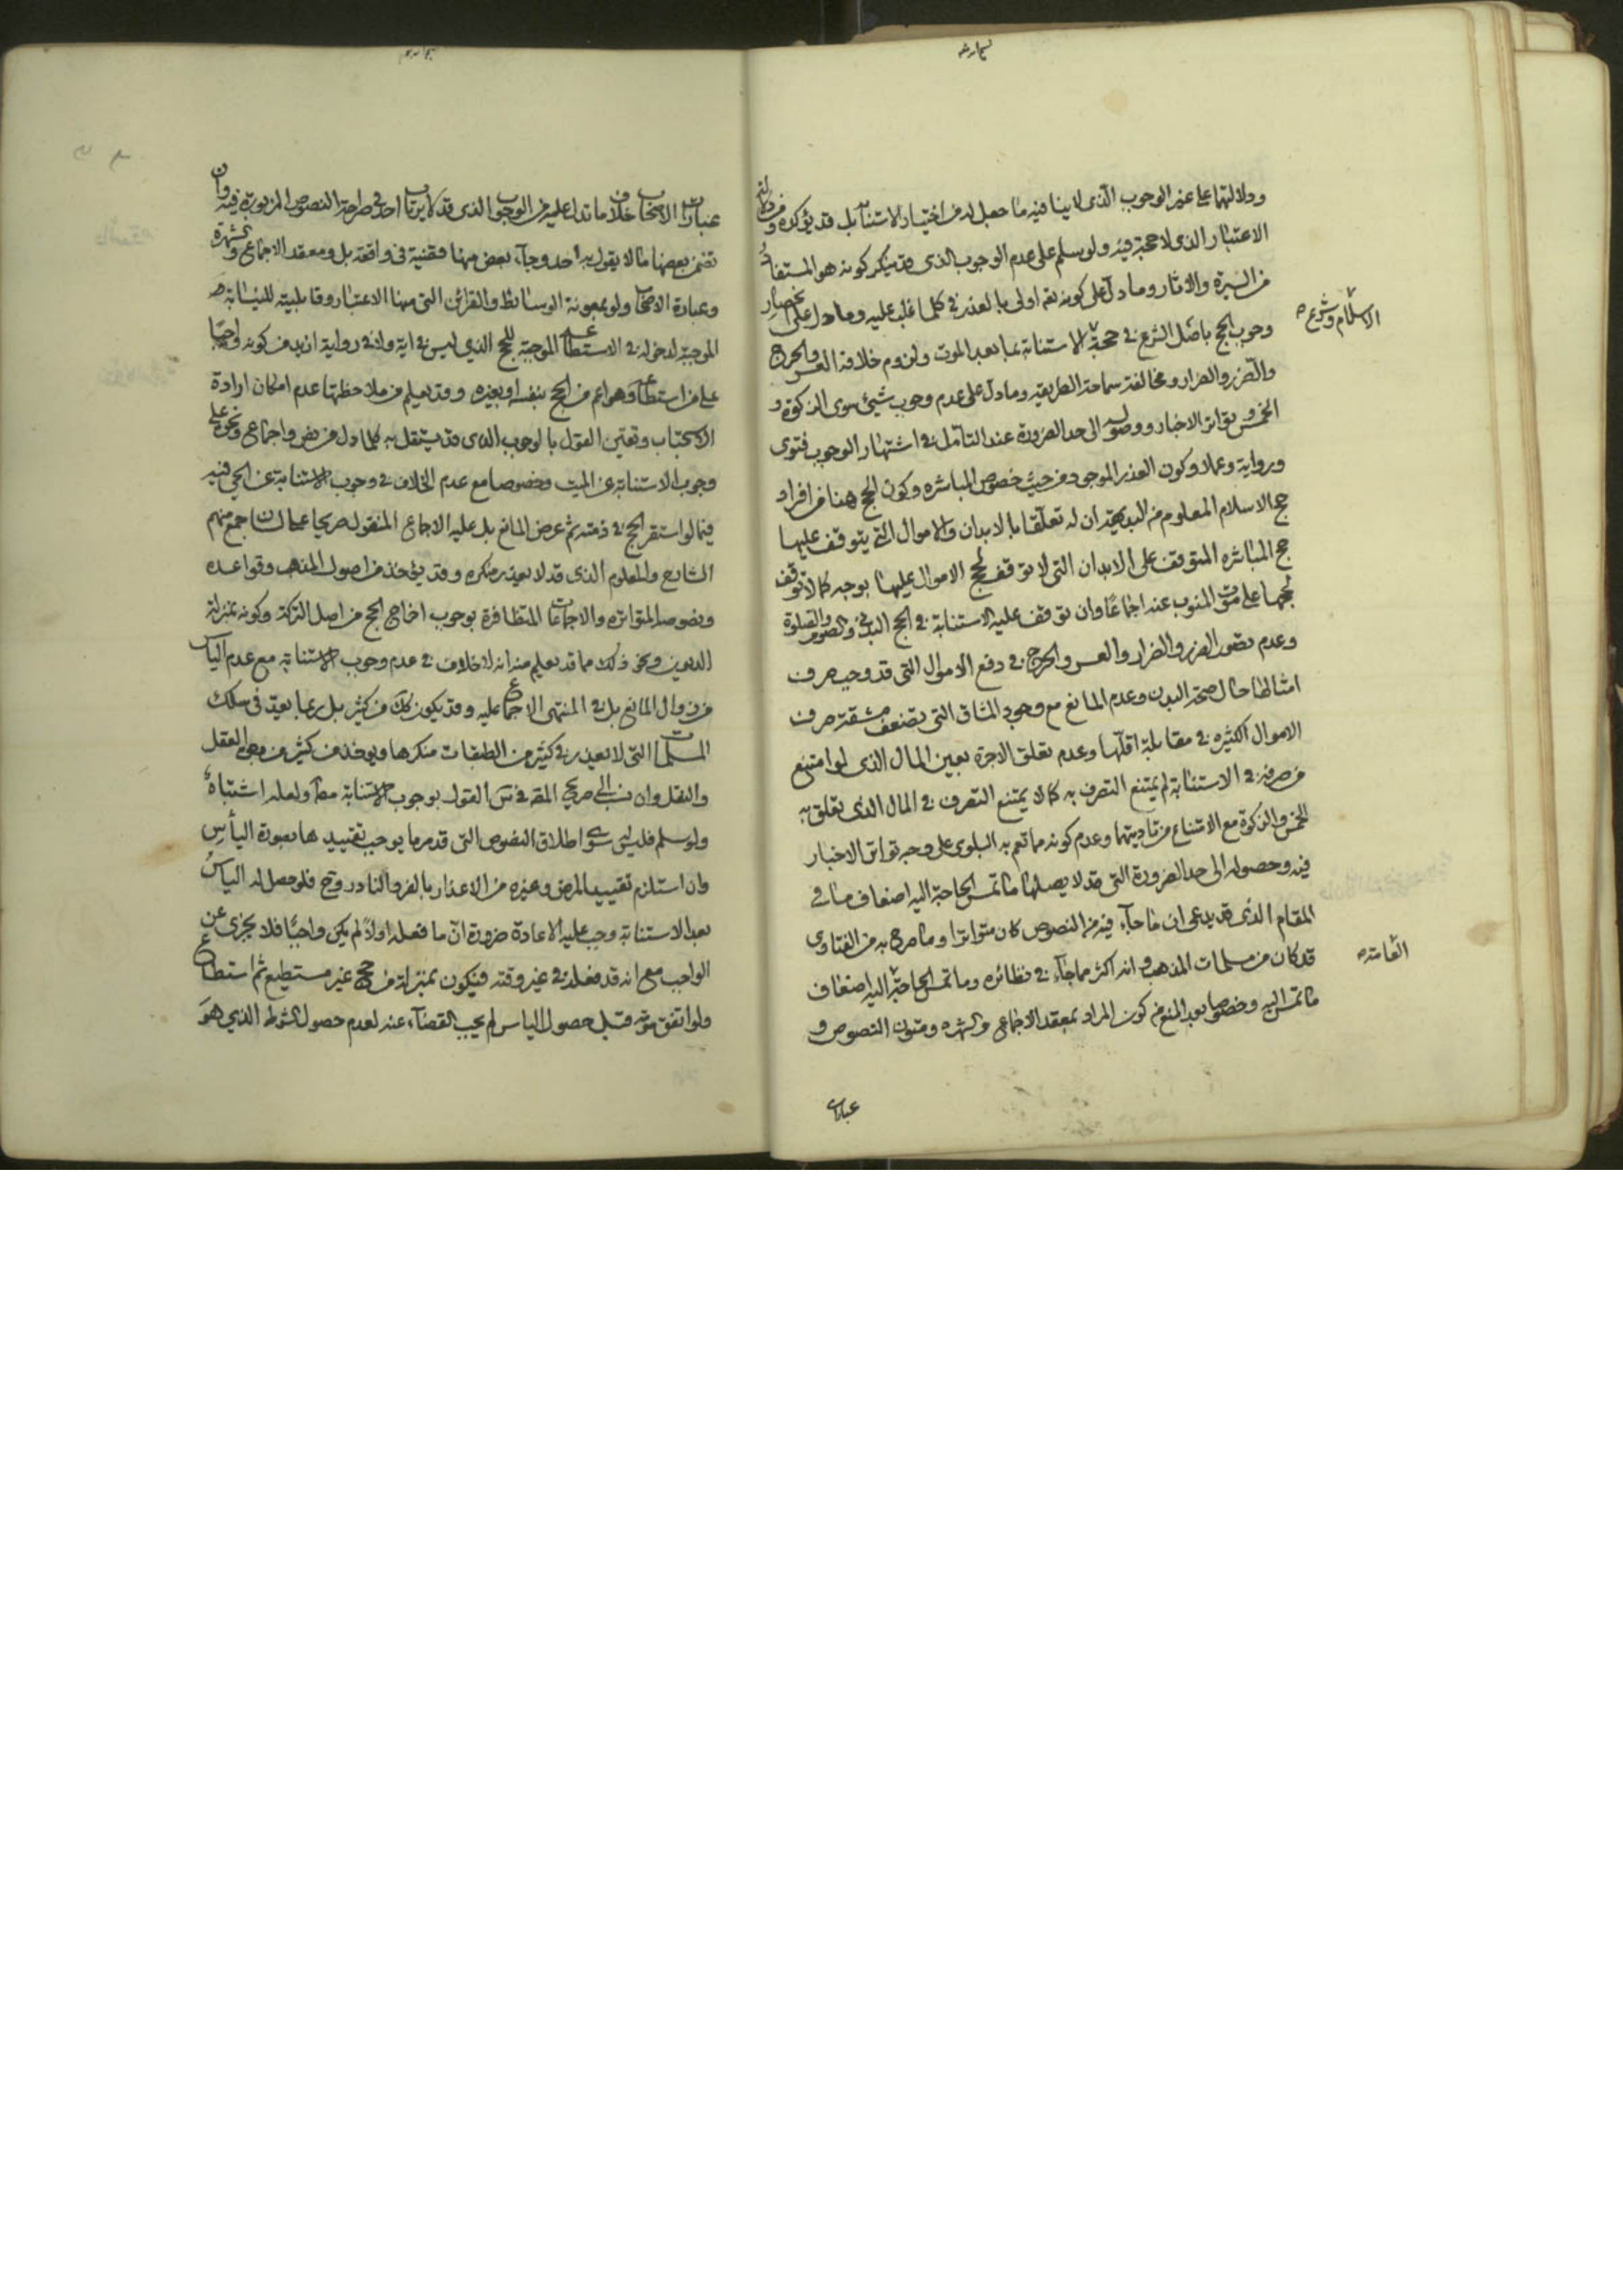 ودلالتهما على غير الوجوب الذى لا ينافيه ما جعل له من اختيار الاستنابة بل قد يؤكده
الاعتبار الذى لا حجة فيه ولو سلم على عدم الوجوب الذى قد ينكر كونه هو المستفاد
من السيرة والاثار وما دل على كونه تعم اولى بالعذر فى كلما غلب عليه وما دل على انحصار
وجوب الحج باصل الشرع فى حجة الاسلام وشرع الاستنابة بما بعد الموت ولزوم خلافه العسر والحرج
والضرر والضرار ومخالفته سماحة الطريقة وما دل على عدم وجوب شيئ سوى الزكوة و
الخمس تواتر الاخبار ووصوله الى حد الضرورة عند التأمل فى اشتهار الوجوب فتوى
ورواية وعملا وكون العذر الموجود من حيث خصوص المباشره وكون الحج هنا من افراد
حج الاسلام المعلوم من البديهة ان له تعلقا بالابدان والاموال التى يتوقف عليها
حج المباشره المتوقف على الابدان التى لا توقف لحج الاموال عليها بوجه كما لا توقف
لحجها على موت المنوب عنه اجماعا وان توقف عليه الاستنابة فى الحج البدنى والصوم والصلوة
وعدم تصور الضرر والضرار والعسر والحرج فى دفع الاموال التى قد وجب صرف
امثالها حال صحة البدن وعدم المانع مع وجود المشاق التى تضعف مشقة صرف
الاموال الكثيره فى مقابلة اقلها وعدم تعلق الاجرة بعين المال الذى لو امتنع
من صرفه فى الاستنابة لم يمتنع التصرف به كما لا يمتنع التصرف فى المال الذى تعلق به
الخمس والزكوة مع الامتناع من تاديتهما وعدم كونه مما تعم به البلوى على وجه تواتر الاخبار
فيه وحصوله الى حد الضرورة التى قد لا يصلها ما تمس الحاجة اليه اضعاف ما فى
المقام الذى قد يدعى ان ما جاء فيه من النصوص كان متواترا وما صرح به من الفتاوى
قد كان من مسلمات المذهب وانه اكثر مما جاء فى نظائره وما تمس الحاجة العامة اليه اضعاف
ما تمس اليه وخصوصا بعد المنع من كون المراد بمعقد الاجماع والشهره ومتون النصوص و
عبارات
عبارات الاصحاب خلاف ما تدل عليه من الوجوب الذى قد لا يرتاب احد فى صراحة النصوص المزبورة فيه وان
تضمن بعضها ما لا يقول به احد وجاء بعض منها فقضية فى واقعة بل ومعقد الاجماع والشهرة
وعبارة الاصحاب ولو بمعونة الوسائط والقرائن التى منها الاعتبار وقابليته للنيابة
الموجبة لدخوله فى الاستطاعة الموجبة للحج الذي ليس فى اية ولا فى رواية ازيد من كونه واجبا
على من استطاع وهو اعم من الحج بنفسه او بغيره وقد يعلم من ملاحظتها عدم امكان ارادة
الاستحباب وتعين القول بالوجوب الذى قد يستقل به كلما دل من نص واجماع ونحوه على
وجوب الاستنابة عن الميت وخصوصا مع عدم الخلاف فى وجوب الاستنابة عن الحى فيه
فيما لو استقر الحج فى ذمته ثم عرض المانع بل عليه الاجماع المنقول صريحا على لسان جمع منهم
المشايخ والمعلوم الذى قد لا يعذر منكره وقد يؤخذ من اصول المذهب وقواعده
ونصوصه المتواتره والاجماعات المتظافرة بوجوب اخراج الحج من اصل التركة وكونه بمنزلة
الديون ونحو ذلك مما قد يعلم منه انه لا خلاف فى عدم وجوب الاستنابة مع عدم الياس
من زوال المانع بل فى المنتهى الاجماع عليه وقد يكون كك من كثير بل ربما يعد فى سلك
المسلمات التى لا يعذر فى كثير من الطبقات منكرها ويؤخذ من كثير من وجوه العقل
والنقل وان نسب الى صريح القول بوجوب الاستنابة مطلقا ولعله اشتباه
ولو سلم فليس سوى اطلاق النصوص التى قد مر ما يوجب تقييدها بصورة اليأس
وان استلزم تقييد المرض وغيره من الاعذار بالفرد النادر وح فلو حصل له الياس
بعد الاستنابة وجب عليه الاعادة ضرورة ان ما فعله اولا لم يكن واجبا فلا يجزى عن
الواجب مع انه قد فعله فى غير وقته فيكون بمنزلة من حج غير مستطيع ثم استطاع
ولو اتفق موته قبل حصول الياس لم يجب القضاء عنه لعدم حصول الشرط الذي هو